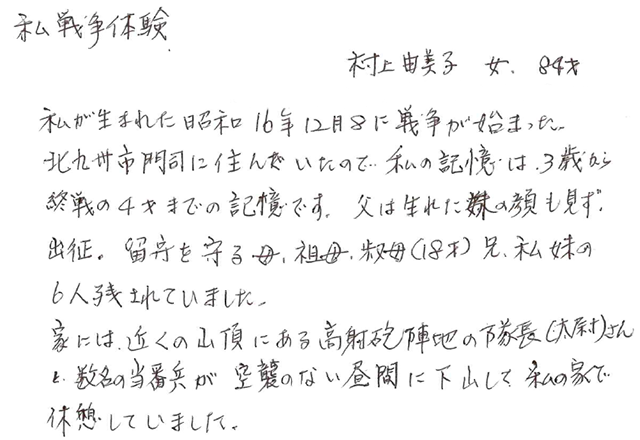 私戦争体験
村上由美子 女、84才
私が生まれた昭和16年12月8に戦争が始まった。
北九州市門司に住んでいたので私の記憶は、3歳から
終戦の4才までの記憶です。父は生れた妹の顔も見ず、
出征。留守を守る母、祖母、叔母(18才)兄、私妹の
6人残されていました。
家には、近くの山頂にある高射砲陣地の隊長(大尉)さん
と、数名の当番兵が空襲のない昼間に下山して私の家で
休憩していました。